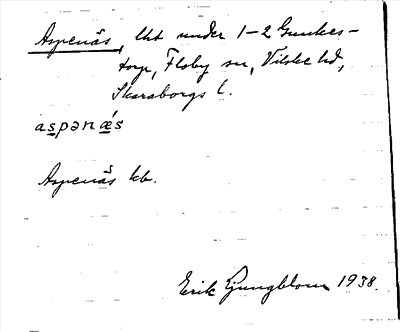 Aspenäs, lht under 1-2 Gunkes-
torp, Floby sn, Vilske hd,
Skaraborgs l.
aspənæ´s
Aspenäs kb.
Erik Ljungblom 1938.